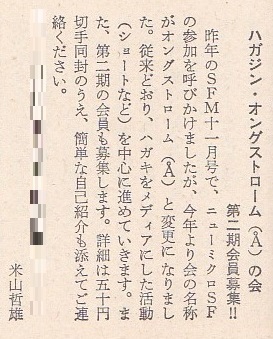 ハガジン・オングストローム(Å)の会
第二期会員募集!!
昨年のSFM十一月号で、ニューミクロSF
の参加を呼びかけましたが、今年より会の名称
がオングストローム(Å)と変更になりまし
た。従来どおり、ハガキをメディアにした活動
(ショートなど)を中心に進めていきます。ま
た、第二期の会員も募集します。詳細は五十円
切手同封のうえ、簡単な自己紹介も添えてご連
絡ください。
米山哲雄